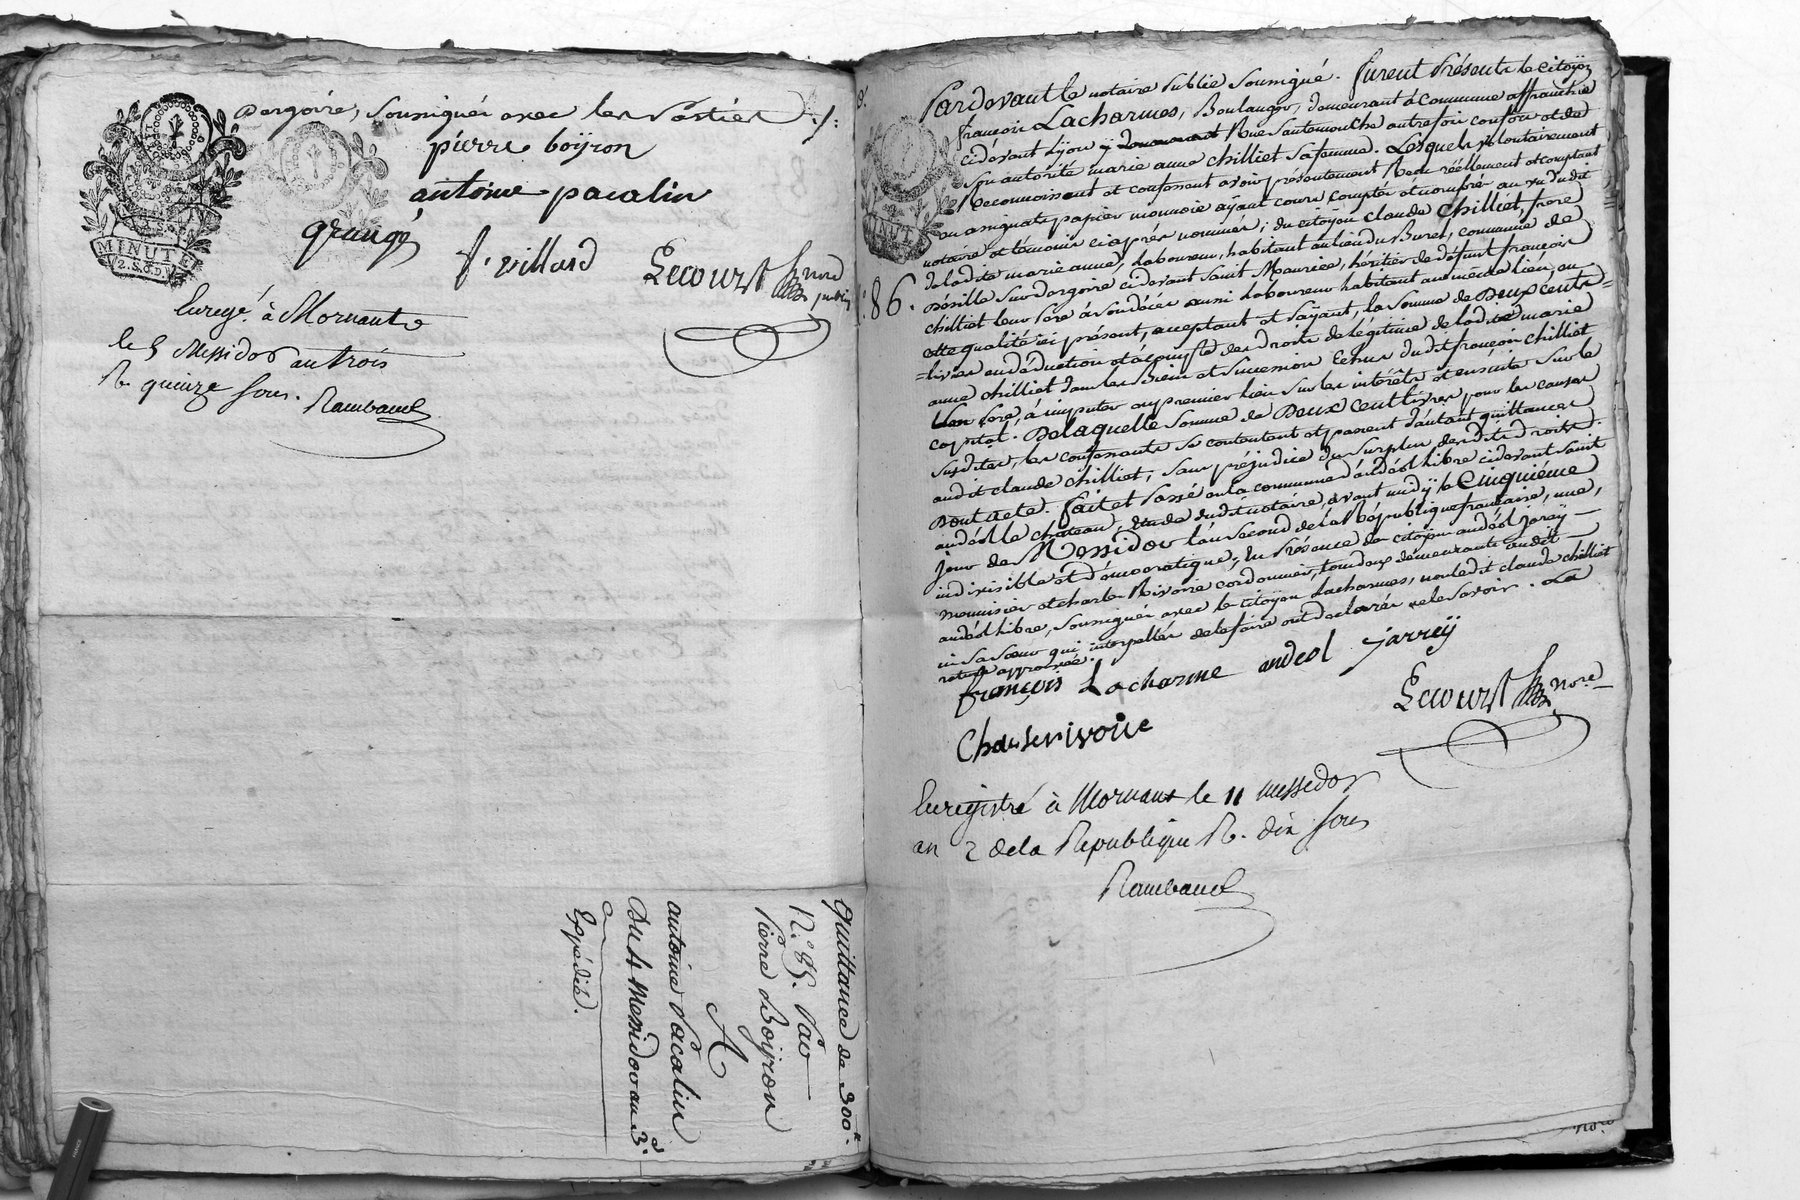 Dargoire, soussignés avec les parties ./.
pierre boÿron
antoine pacalin
grangé
f. villard
Lecourt
nore
public
MINUTE
2. S. 6. D
Enregé. à Mornant
le 5 Messidor an trois
R. quinze sous.
Rambaud
Quittance de 300#.
N.° 85. Par
Pierre Boÿron
A
antoine Pacalin
Du 4 Messidor an 3e.
Expédié.
Pardevant le notaire Public soussigné. furent Présents le citoÿen
françois Lacharmes, Boulanger, demeurant à commune affranchie
cidevant Lÿon, Rue Cantemerche autrefois confort et de
son autorité marie anne chilliet sa femme. Lesquels volontairement
Reconnoissent et confessent avoir présentement Reçu réellement et comptant
en assignats papier monnoie aÿant cours comptés et nombrés au vu dudit
notaire et temoins ciaprès nommés; du citoÿen claude chilliet, frere
de ladite marie anne, laboureur, habitant au lieu du Buret, commune de
86.
Dargoire cidevant saint Maurice, héritier de défunt françois
chilliet leur Pere à son décès aussi laboureur habitant au même lieu, en
cette qualité ici présent, acceptant et Paÿant, la somme de Deux cents
livres en déduction et àcompte des droits de légitime de ladite marie
anne chilliet dans les Biens et succession Echus dudit françois chilliet
son Pere, à imputer en premier lieu sur les intérêts et ensuite sur le
capital. De laquelle somme de Deux cent Livres pour les causes
susdites, les confessants se contentent et passent d'autant quittances
audit claude chilliet, sans préjudice du surplus desdits droits.
Dont acte. fait et Passé en la commune d'andéol libre cidevant saint
andéol le chateau, Etude dudit notaire, avant midÿ le Cinquième
jour de Messidor l'an second de la République française, une,
indivisible et démocratique; En Présence des citoÿens andéol jareÿ
menuisier et charles Rivoire cordonnier, tous deux demeurants audit
andéol libre, soussignés avec le citoÿen Lacharmes, non ledit claude chilliet
ni sa sœur qui interpellés de le faire ont déclarés ne le savoir. La
rature approuvée.
françois Lacharme
andeol jarreÿ
Charle rivoire
Lecourt
nore
Enregistré à Mornant le 11 messidor
an 2 de la Republique R. dix sous
Rambaud